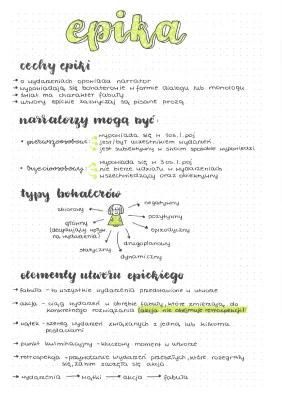 epika
cechy epiki
→ o wydarzeniach opowiada narrator
→ wypowiadają się bohaterowie w formie dialogu lub monologu
→ świat ma charakter fabuły
→ utwory epickie zazwyczaj są pisane prozą
narratorzy mogą być:
• pierwszoosobowi:
wypowiada się w 1os.l.poj
jest/był uczestnikiem wydarzeń
jest subiektywny w swoim sposobie wypowiedzi
• trzecioosobowi:
wypowiada się w 3os.l.poj
nie bierze udziału w wydarzeniach
wszechwiedzący oraz obiektywny
typy bohaterów
zbiorowy
negatywny
główny
pozytywny
(decydujący wpływ
na wydarzenia)
epizodyczny
statyczny
drugoplanowy
dynamiczny
elementy utworu epickiego
→ fabuła - to wszystkie wydarzenia przedstawione w utworze
→ akcja - ciąg wydarzeń w obrębie fabuły, które zmierzają do
konkretnego rozwiązania (akcja nie obejmuje retrospekcji!)
→ wątek - szereg wydarzeń związanych z jedną lub kilkoma
postaciami
→ punkt kulminacyjny - kluczowy moment w utworze
→ retrospekcja - przywołanie wydarzeń przeszłych, które rozegrały
się, zanim zaczęła się akcja
→ wydarzenia → wątki → akcja → fabuła